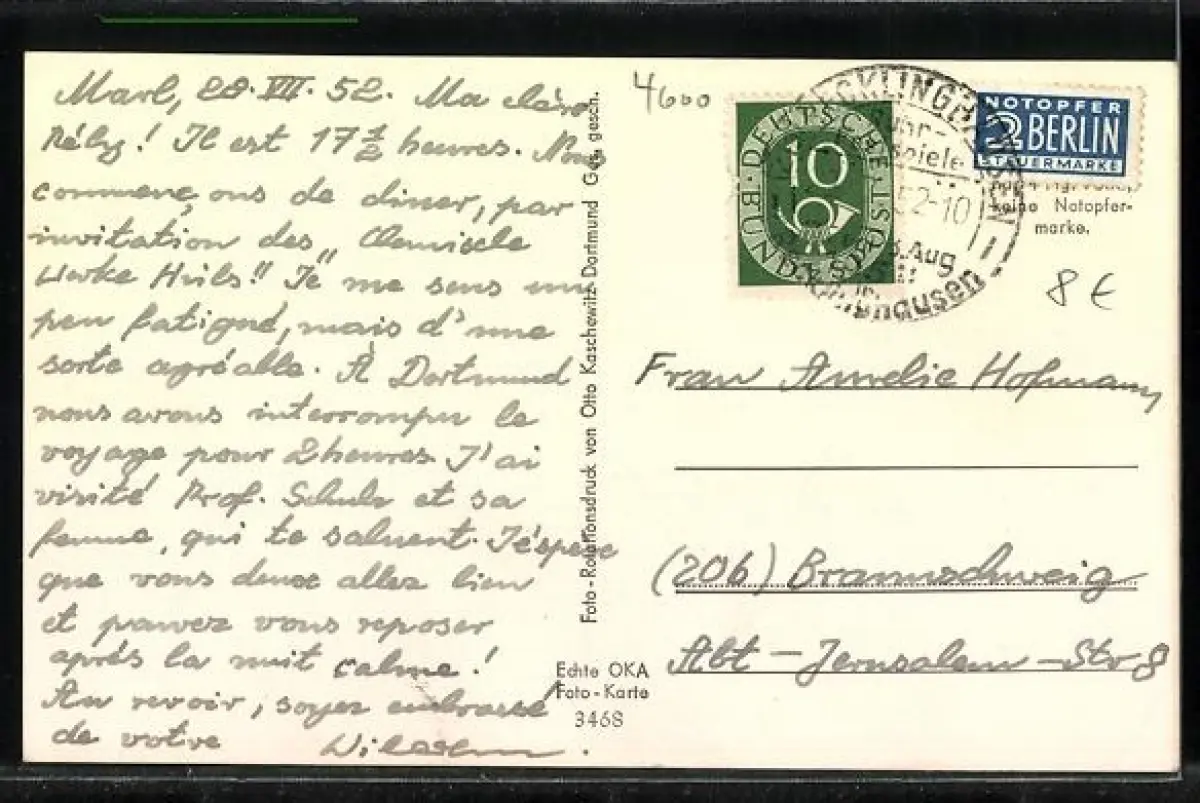 Marl, 28. VII. 52. Ma chère
Rély! Il est 17 1/2 heures. Nous
commenç̧ons de diner, par
invitation des „Chemische
Werke Hüls"! Je me sens un
peu fatigué, mais d'une
sorte agréable. À Dortmund
nous avons interrompu le
voyage pour 2 heures. J'ai
visité Prof. Schulz et sa
femme, qui te saluent. J'éspère
que vous deux allez bien
et pouvez vous reposer
après la nuit calme!
Au revoir, soyez embrassé
de votre
Foto-Rotationsdruck von Otto Kaschewitz Dortmund Ges. gesch.
Echte OKA
Foto-Karte
3468
4600
DEUTSCHE
BUNDESPOST
10
RECKLINGHAUSEN
Ruhr-
52-10
Aug
NOTOPFER
2 BERLIN
STEUERMARKE
keine Notopfer-
marke.
8 €
Frau Aurelie Hofmann
(20b) Braunschweig
Abt-Jerusalem-Str 8